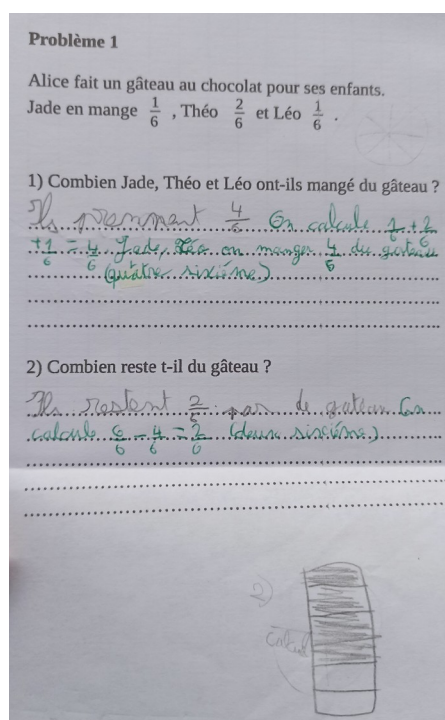 Problème 1
Alice fait un gâteau au chocolat pour ses enfants.
Jade en mange 1/6 , Théo 2/6 et Léo 1/6 .
1) Combien Jade, Théo et Léo ont-ils mangé du gâteau ?
Ils prennent 4/6 On calcule 1/6 + 2/6
+ 1/6 = 4/6 Jade, on manger 4/6 du
(quatre sixième)
2) Combien reste t-il du gâteau ?
Ils restent 2/6 par de gateau On
calcule 6/6 - 4/6 = 2/6 (deux sixième)
2)
calcul